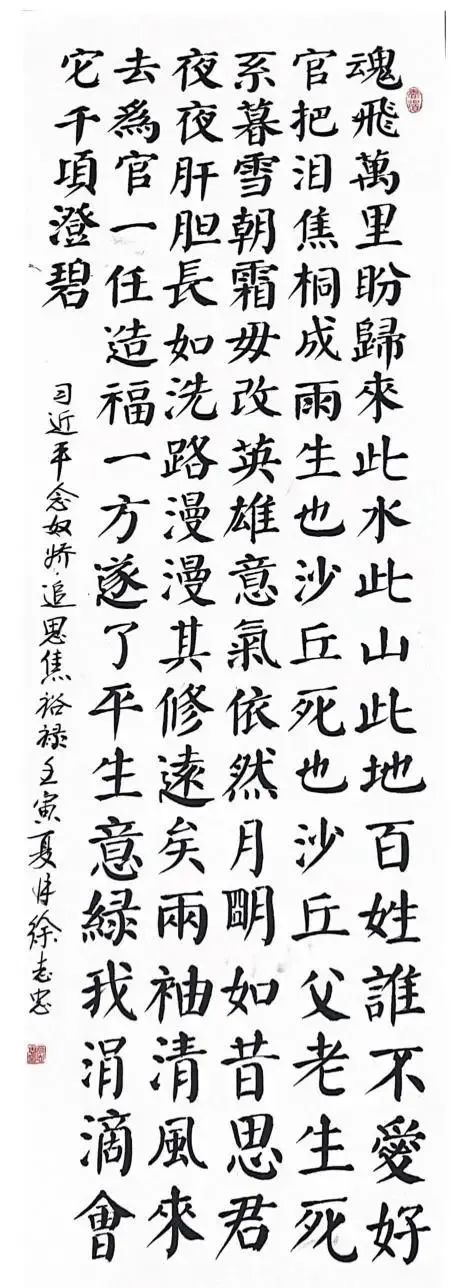 魂飛萬里盼歸來此水此山此地百姓誰不愛好
官把泪焦桐成雨生也沙丘死也沙丘父老生死
系暮雪朝霜毋改英雄意氣依然月朙如昔思君
夜夜肝胆長如洗路漫漫其修遠矣兩袖清風來
去爲官一任造福一方遂了平生意緑我涓滴會
它千項澄碧
习近平念奴娇·追思焦裕禄壬寅夏月徐志忠